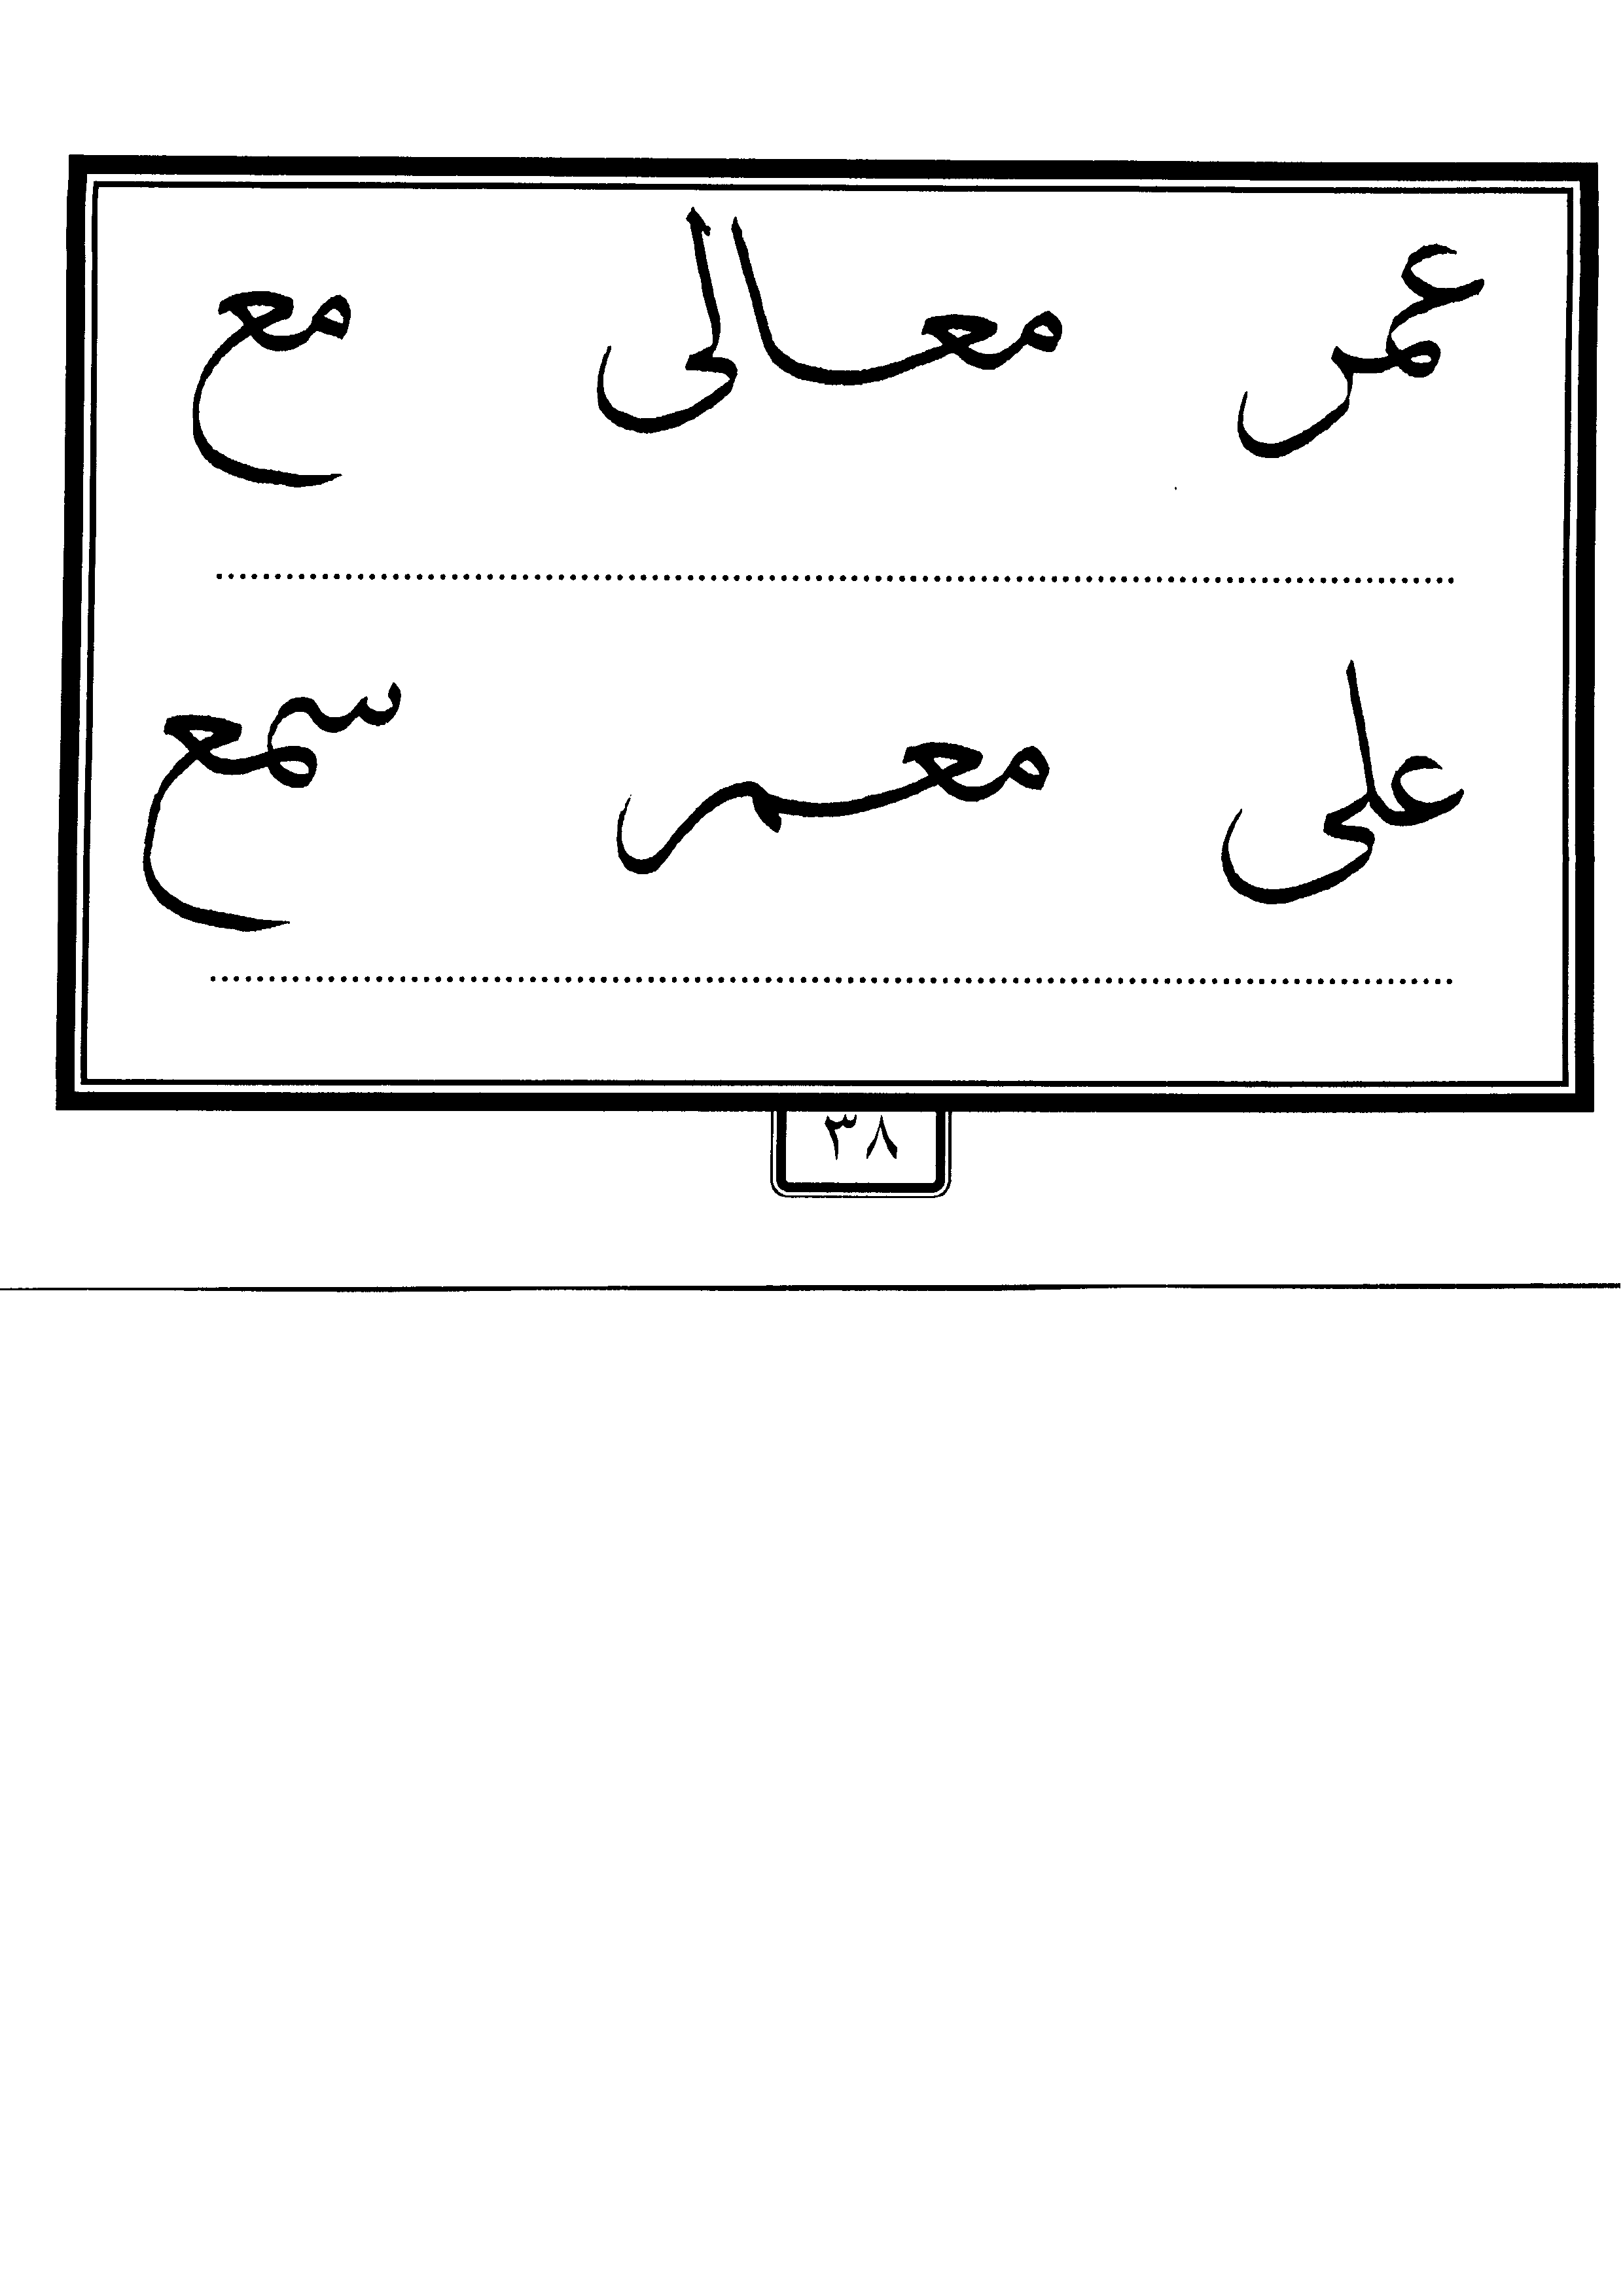 عمر معالى مع
على معمر سمع
٣٨